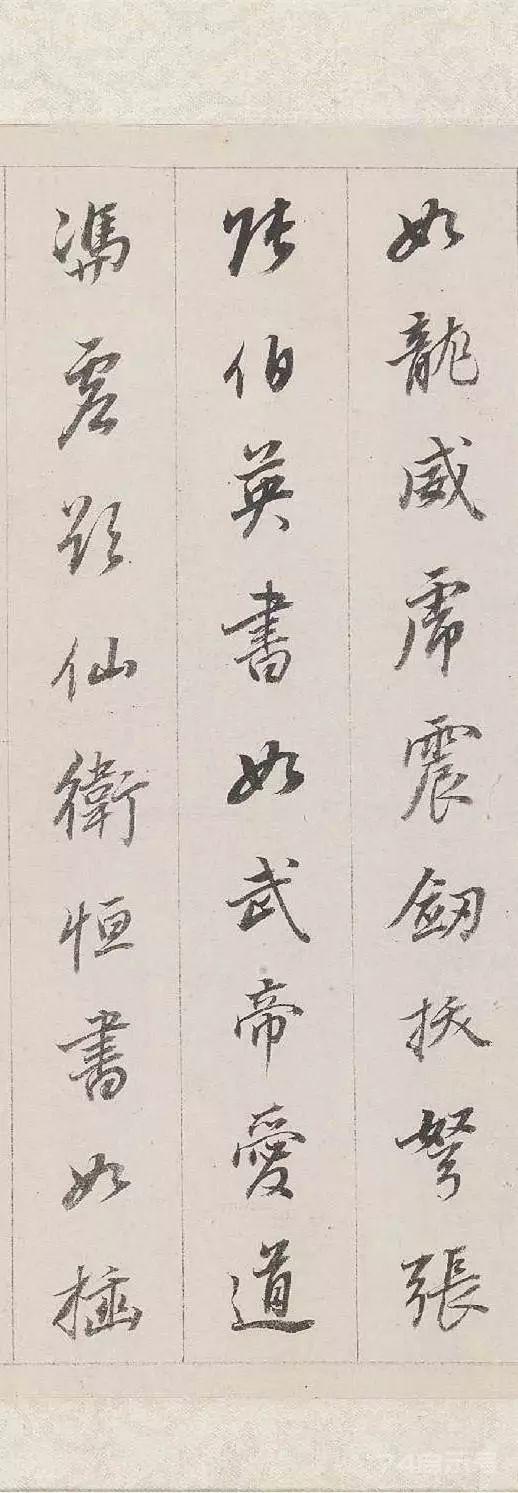 如龍威虎震劔拔弩張
張伯英書如武帝愛道
馮虛欲仙衛恒書如插